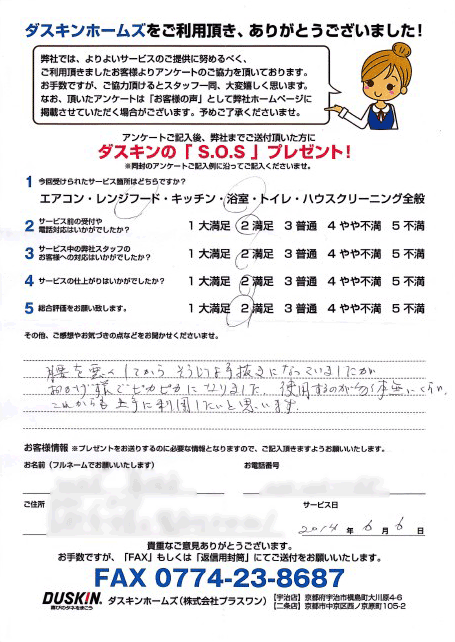 ダスキンホームズをご利用頂き、ありがとうございました!
弊社では、よりよいサービスのご提供に努めるべく、
ご利用頂きましたお客様よりアンケートのご協力を頂いております。
お手数ですが、ご協力頂けるとスタッフ一同、大変嬉しく思います。
なお、頂いたアンケートは「お客様の声」として弊社ホームページに
掲載させていただく場合がございます。予めご了承くださいませ。
アンケートご記入後、弊社までご送付頂いた方に
ダスキンの「 S.O.S 」プレゼント!
※同封のアンケートご記入例に沿ってご記入くださいませ。
1 今回受けられたサービス箇所はどちらですか?
エアコン・レンジフード・キッチン・浴室・トイレ・ハウスクリーニング全般
2 サービス前の受付や
電話対応はいかがでしたか? 1 大満足 2 満足 3 普通 4 やや不満 5 不満
3 サービス中の弊社スタッフの
お客様への対応はいかがでしたか? 1 大満足 2 満足 3 普通 4 やや不満 5 不満
4 サービスの仕上がりはいかがでしたか? 1 大満足 2 満足 3 普通 4 やや不満 5 不満
5 総合評価をお願い致します。 1 大満足 2 満足 3 普通 4 やや不満 5 不満
その他、ご感想やお気づきの点などをお聞かせくださいませ。
腰を悪くしてから そうじも手抜きになっていましたが
おかげ様でピカピカになりました。使用するのが勿体無いくらい。
これからも上手に利用したいと思います。
お客様情報 ※プレゼントをお送りするのに必要な情報となりますので、ご記入頂きますようお願いいたします。
お名前(フルネームでお願いいたします) お電話番号
ご住所 サービス日
2014 年 6 月 6 日
貴重なご意見ありがとうございます。
お手数ですが、「FAX」もしくは「返信用封筒」にてご送付をお願いいたします。
FAX 0774-23-8687
DUSKIN 喜びのタネをまこう ダスキンホームズ(株式会社プラスワン) [宇治店] 京都府宇治市槇島町大川原4-6
[二条店] 京都市中京区西ノ京原町105-2